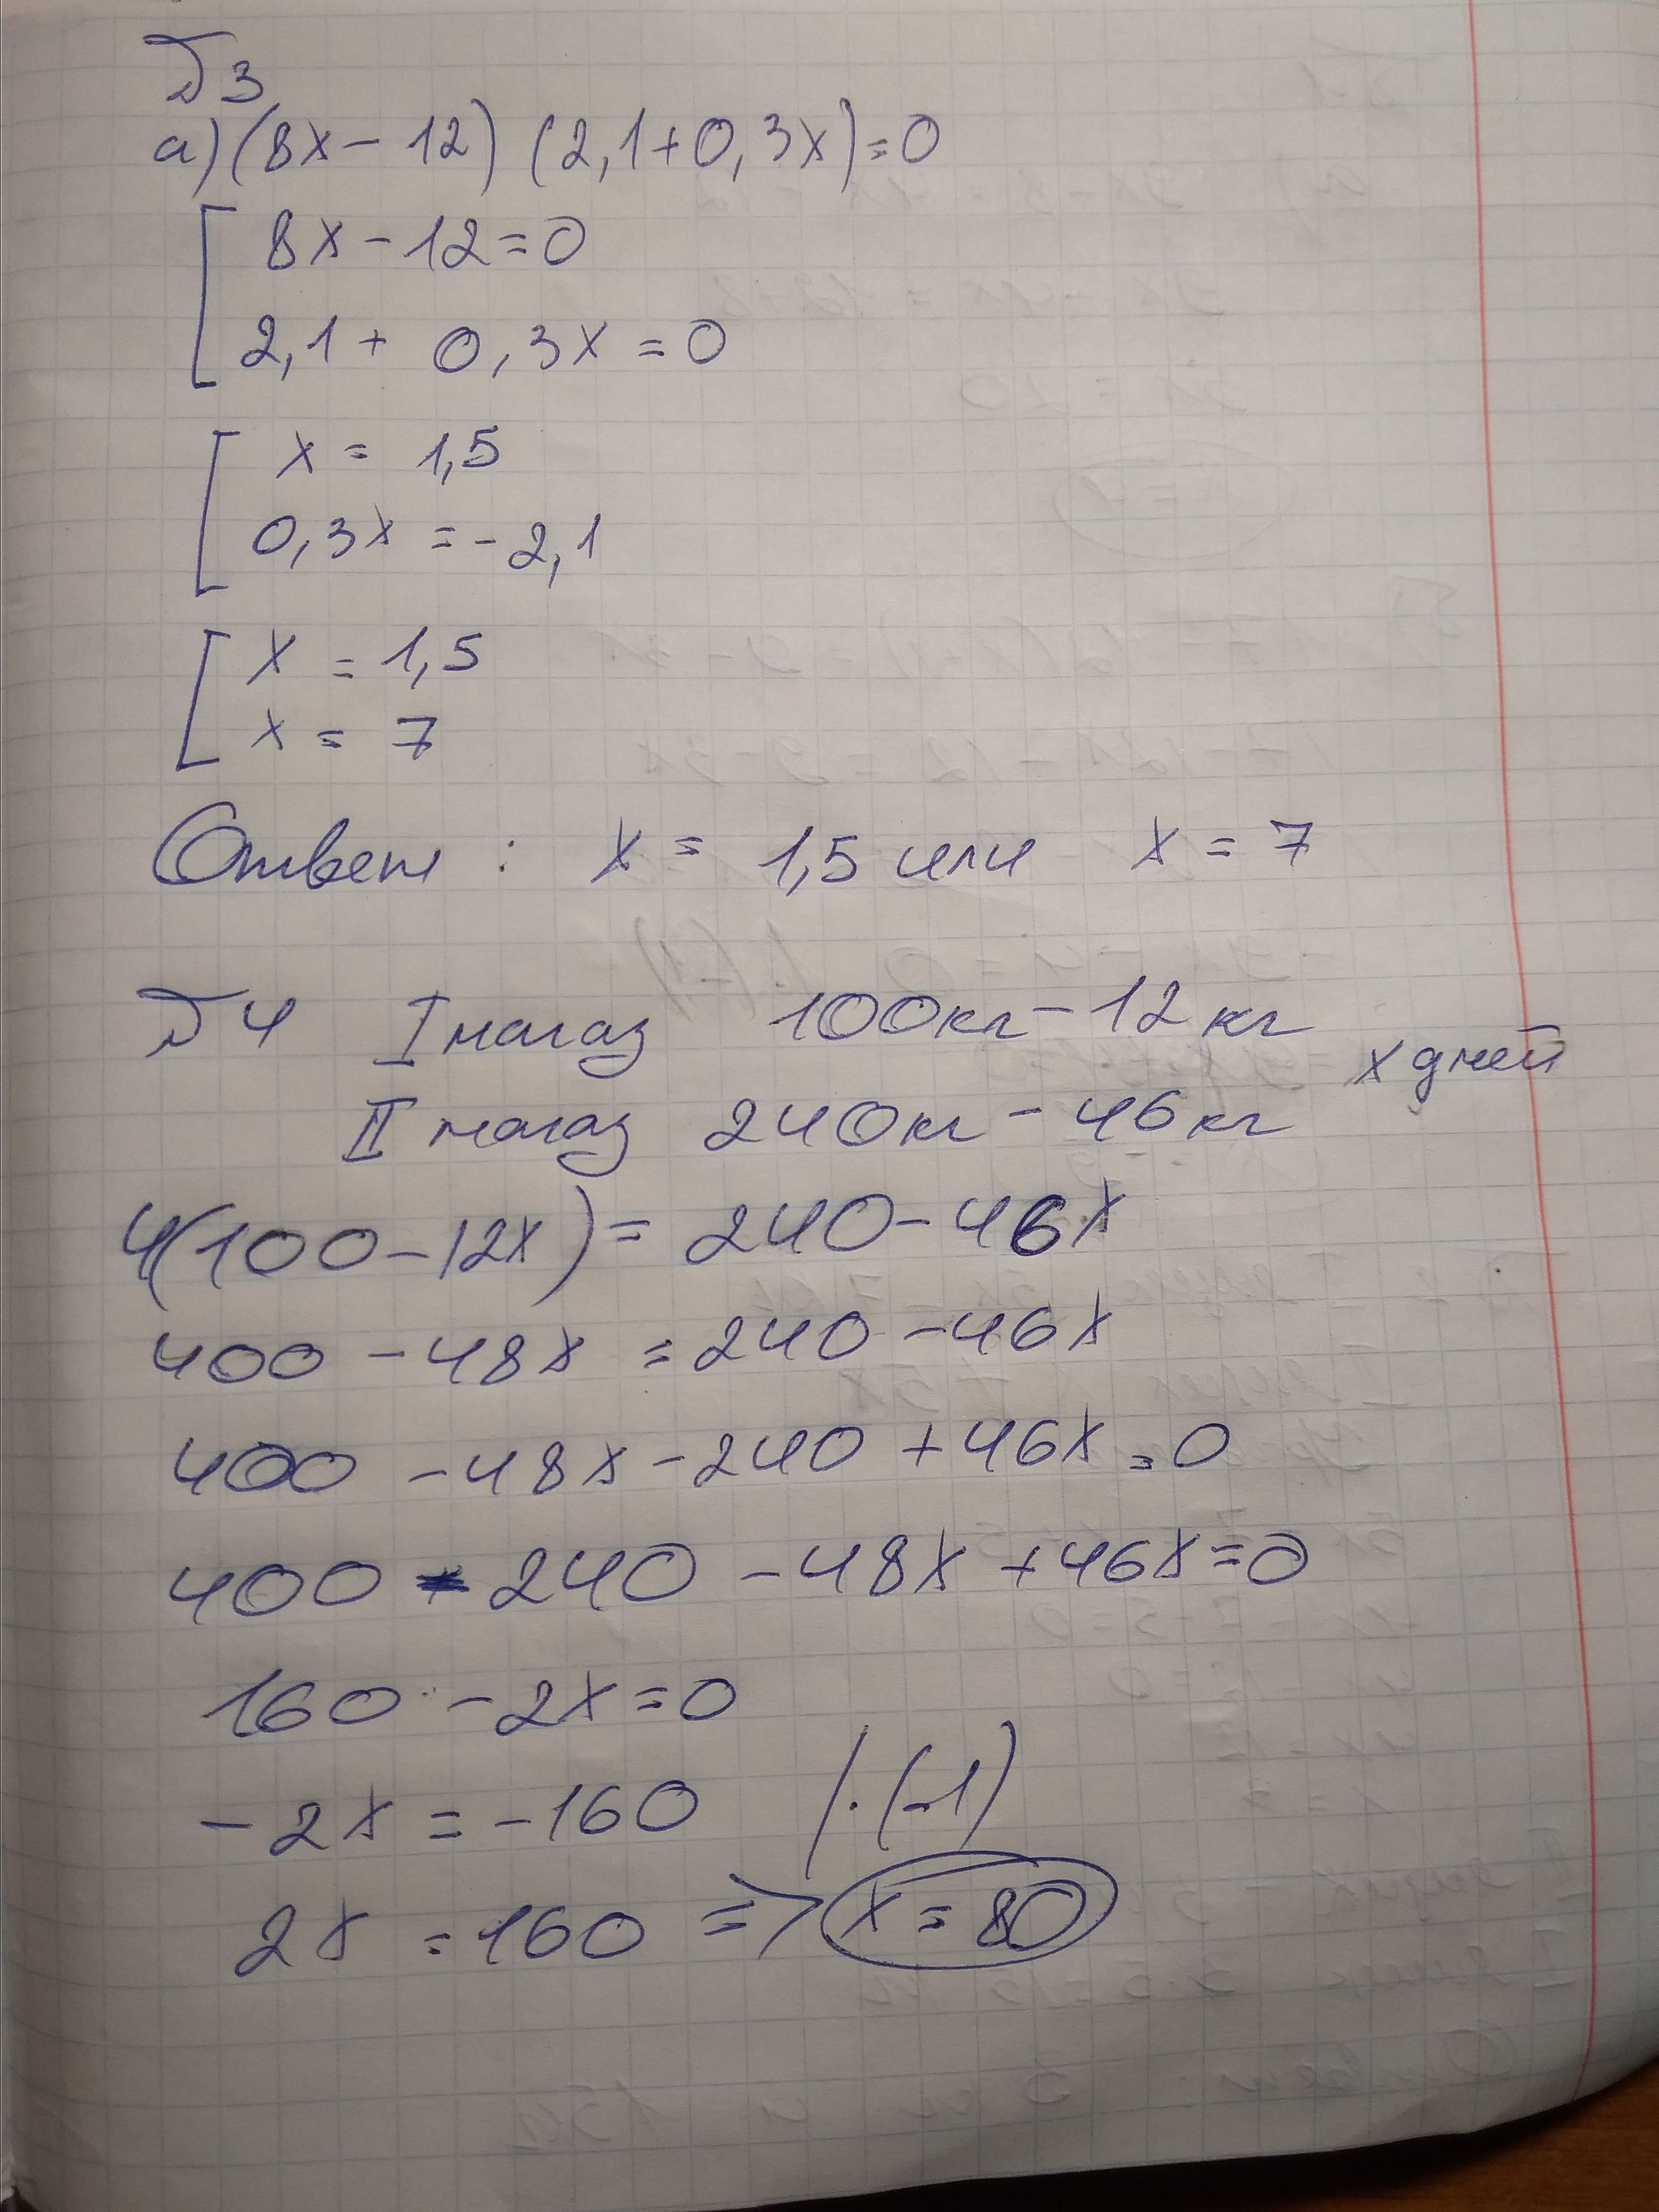 №3
а) (8x - 12) (2,1 + 0,3x) = 0
8x - 12 = 0
2,1 + 0,3x = 0
x = 1,5
0,3x = -2,1
x = 1,5
x = 7
Ответ : x = 1,5 или x = 7
№4 I магаз 100кг - 12 кг
x дней
II магаз 240кг - 46кг
4(100 - 12x) = 240 - 46x
400 - 48x = 240 - 46x
400 - 48x - 240 + 46x = 0
400 - 240 - 48x + 46x = 0
160 - 2x = 0
-2x = -160 /·(-1)
2x = 160 => x = 80